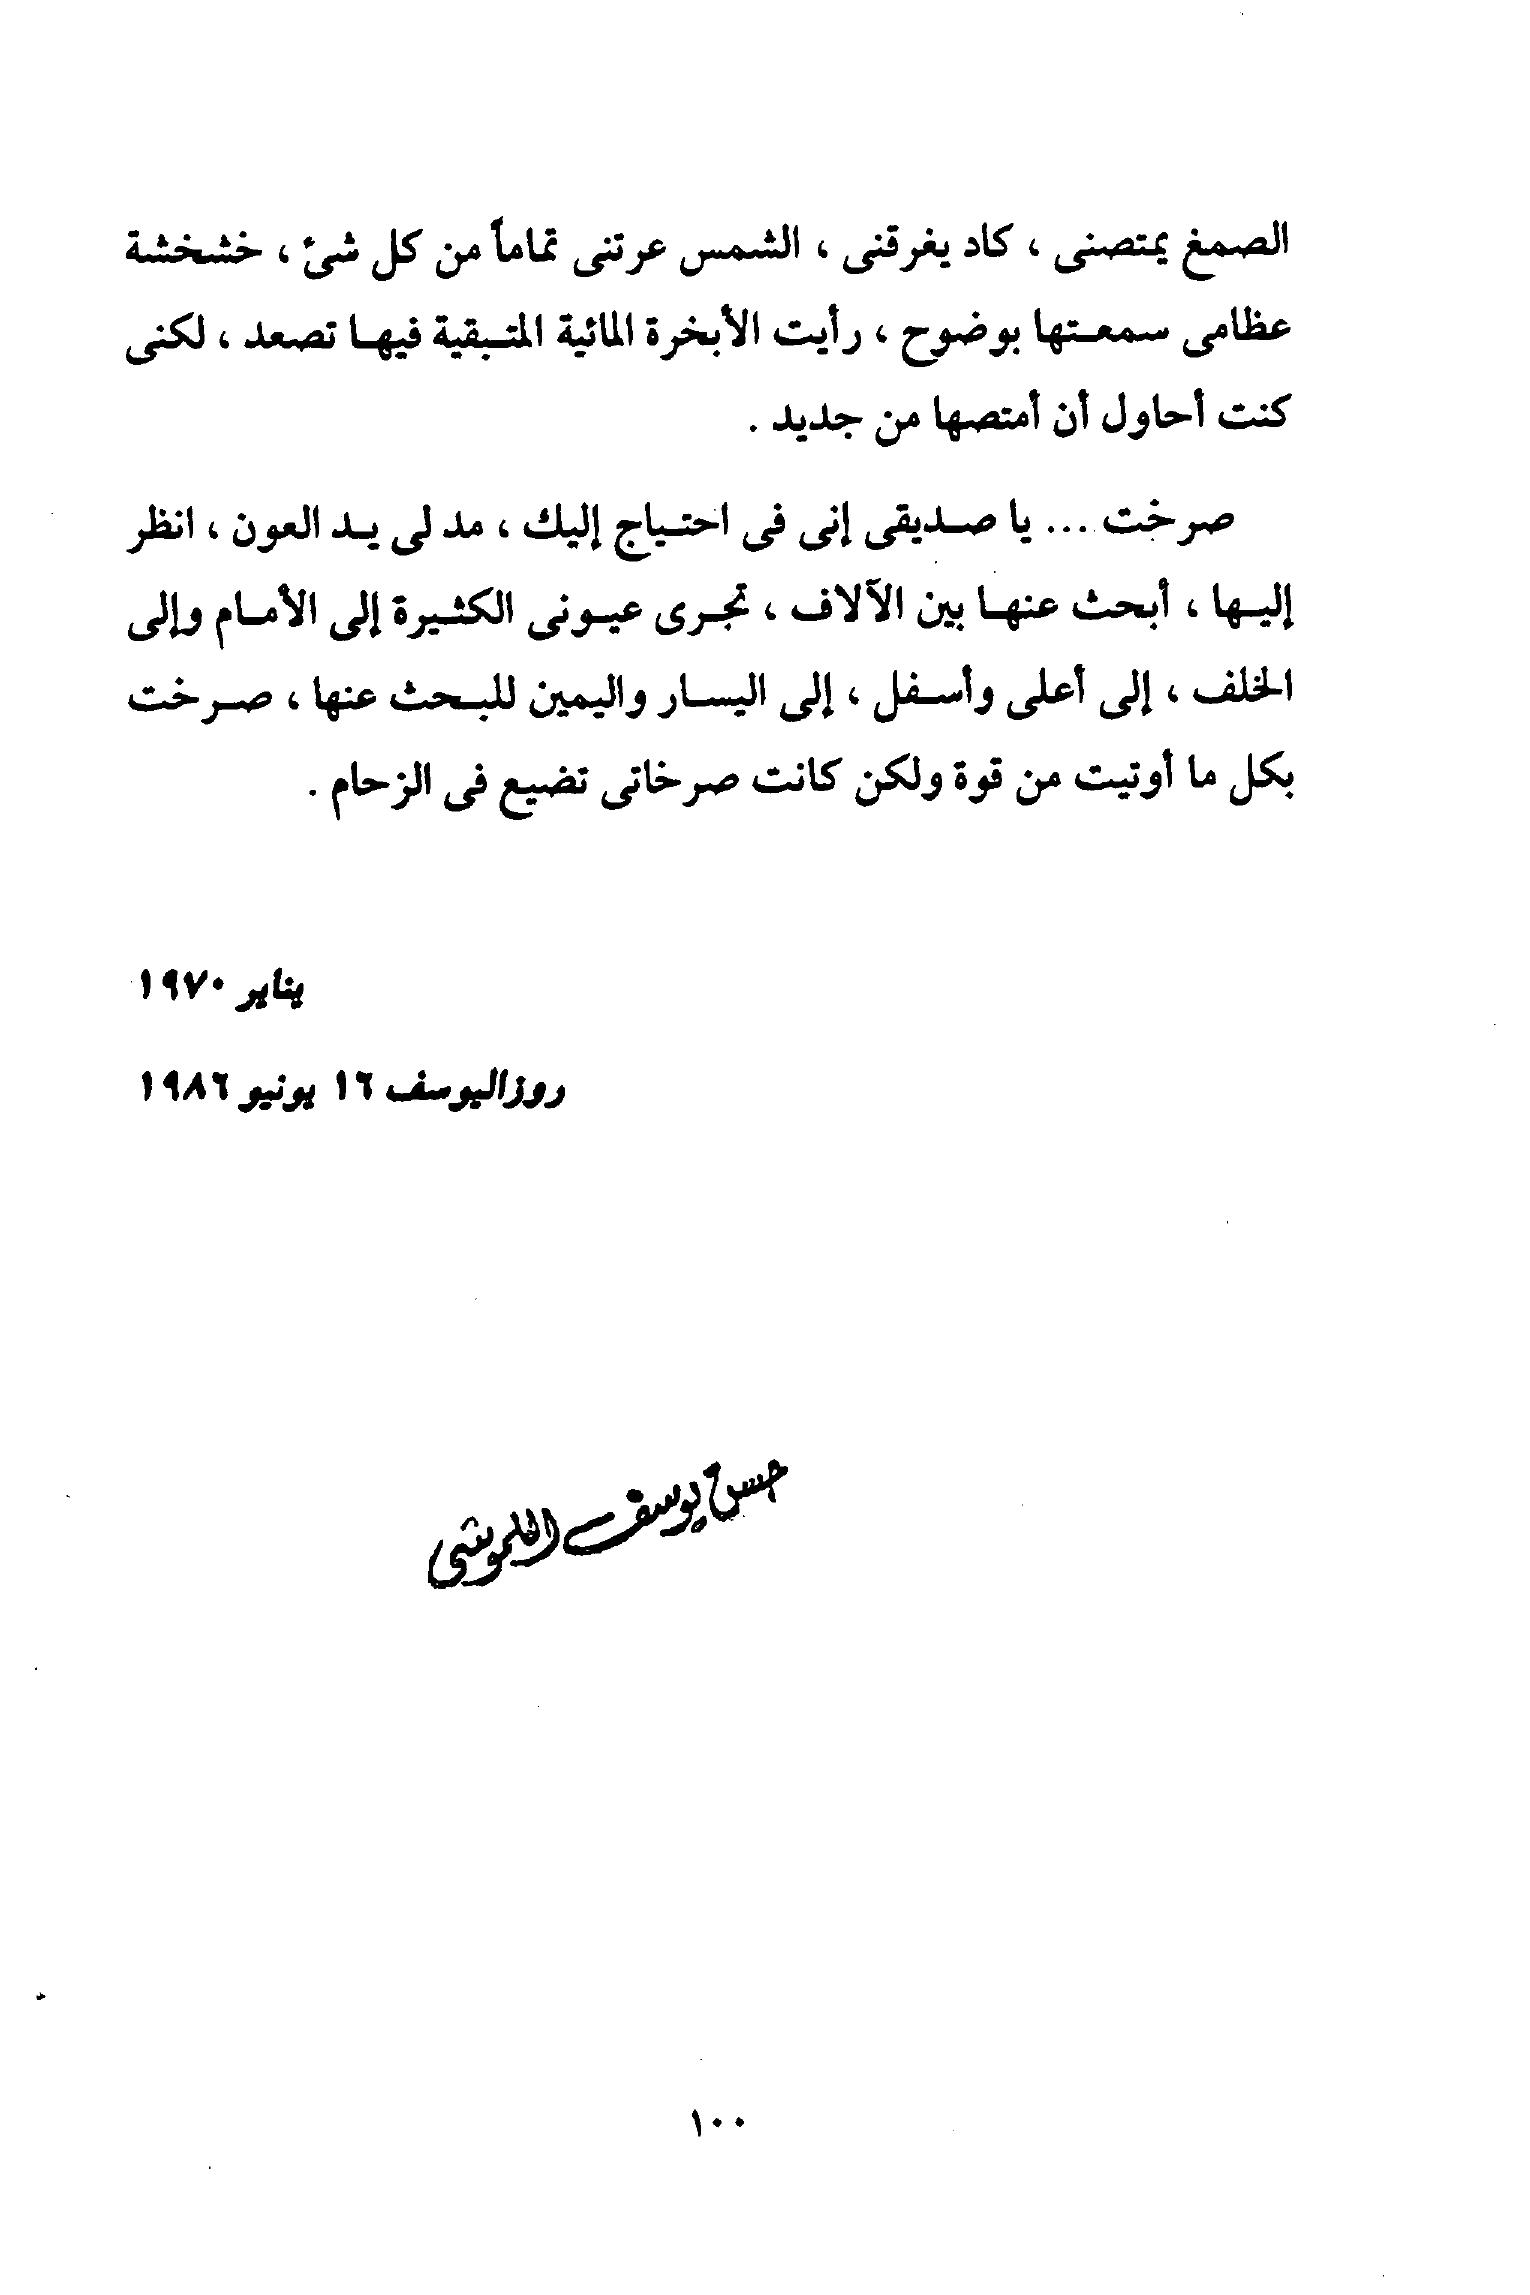 الصمغ يمتصنى ، كاد يغرقنى ، الشمس عرتنى تماماً من كل شئ ، خشخشة
عظامى سمعتها بوضوح ، رأيت الأبخرة المائية المتبقية فيها تصعد ، لكنى
كنت أحاول أن أمتصها من جديد .
صرخت ... يا صديقى إنى فى احتياج إليك ، مد لى يد العون ، انظر
إليها ، أبحث عنها بين الآلاف ، تجرى عيونى الكثيرة إلى الأمام وإلى
الخلف ، إلى أعلى وأسفل ، إلى اليسار واليمين للبحث عنها ، صرخت
بكل ما أوتيت من قوة ولكن كانت صرخاتى تضيع فى الزحام .
يناير ١٩٧٠
روزاليوسف ١٦ يونيو ١٩٨٦
حسن يوسف
١٠٠